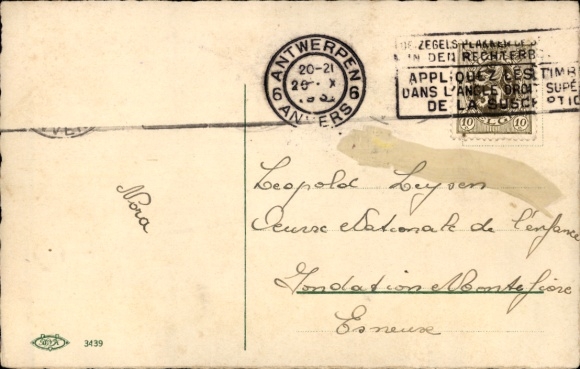 ANTWERPEN
6 6
20-21
ANVERS
ZEGELS PLAKKEN
IN DEN RECHTERB
APPLIQUEZ LES TIMB
DANS L'ANGLE DROI SUPÉ
DE LA SUSC PTIO
10 10
Nora
Leopold Leysen
Oeuvre Nationale de l'enfance
Fondation Montefiore
Esneux
3439